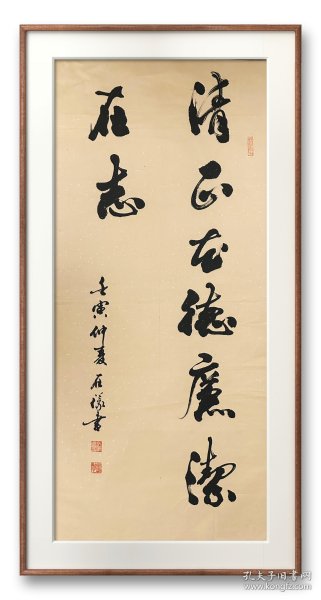 清正在德廉潔
在志
壬寅仲夏雁書
孔夫子旧书网
www.kongfz.com